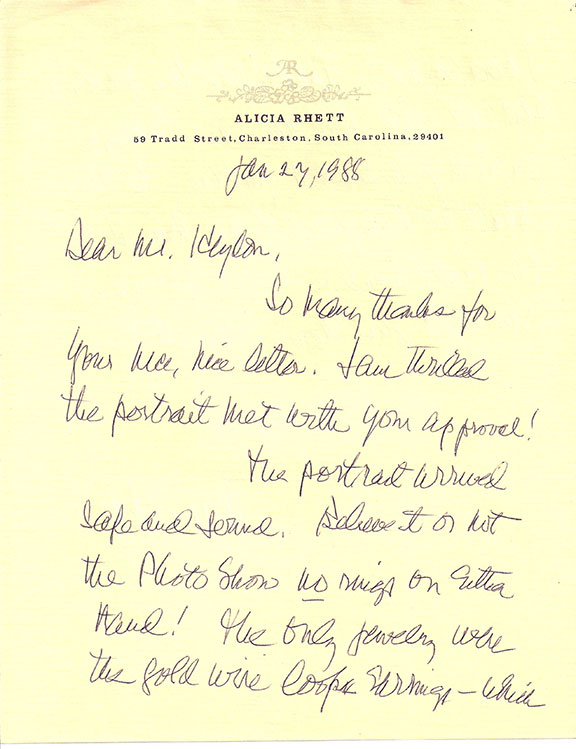 AR
ALICIA RHETT
59 Tradd Street, Charleston, South Carolina, 29401
Jan 27, 1988
Dear Mr. Heylon,
So many thanks for
your nice, nice letter. I am thrilled
the portrait met with your approval!
The portrait arrived
safe and sound. Believe it or not
the Photo show no rings on Either
Hand! The only jewelry were
the gold wire loops Earrings – which